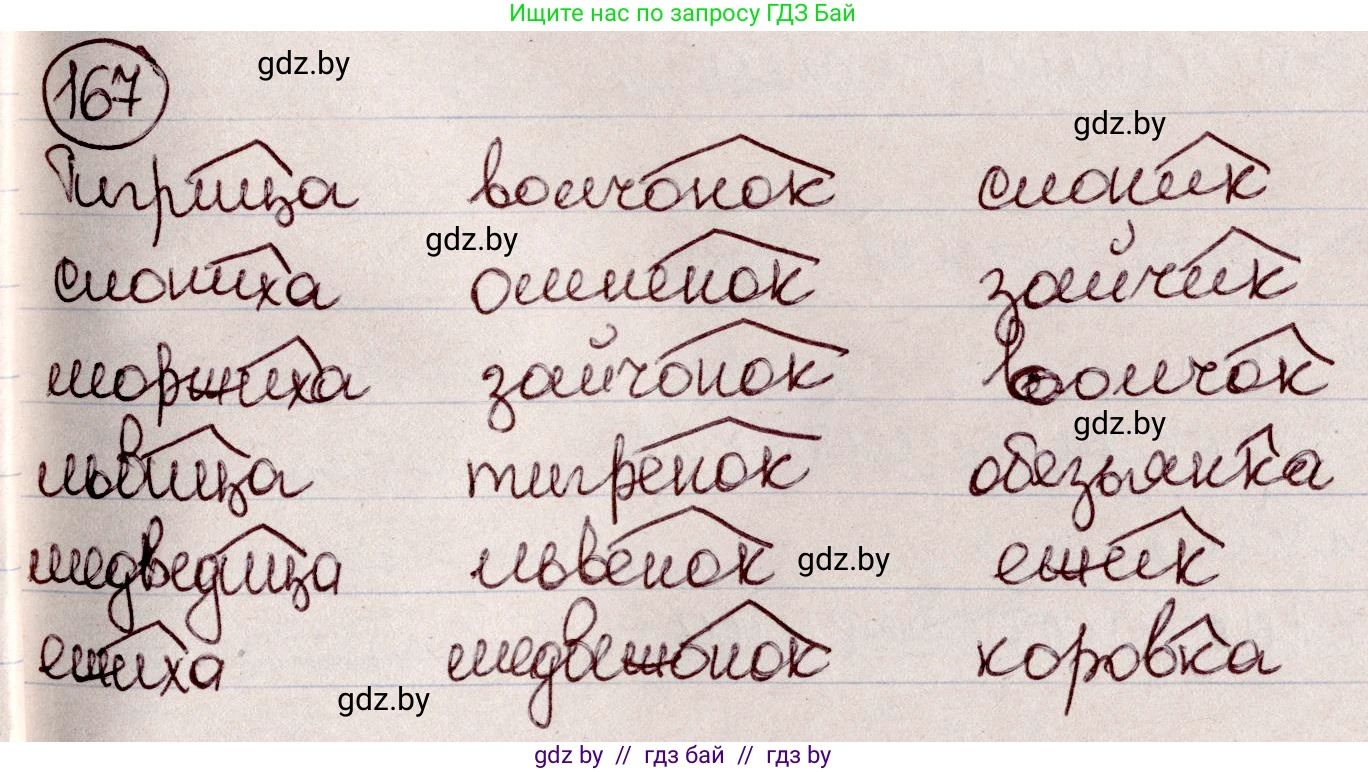 Ищите нас по запросу ГДЗ Бай
167
gdz.by
gdz.by
Тигрица волчонок слоник
gdz.by
слониха оленёнок зайчик
моржиха зайчонок волчок
gdz.by
львица тигрёнок обезьянка
медведица львёнок ежик
gdz.by
ежиха медвежонок коровка
gdz.by
gdz by // гдз бай // гдз by